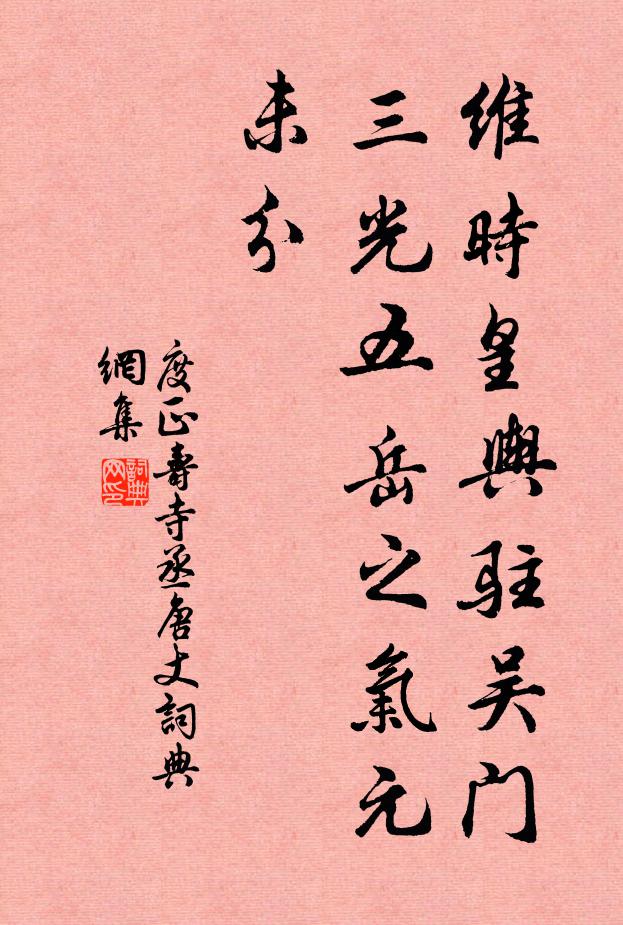 維時皇輿駐吴门
三光五岳之氣元
未分
度正壽寺丞唐丈詞典
網集
詞典网印